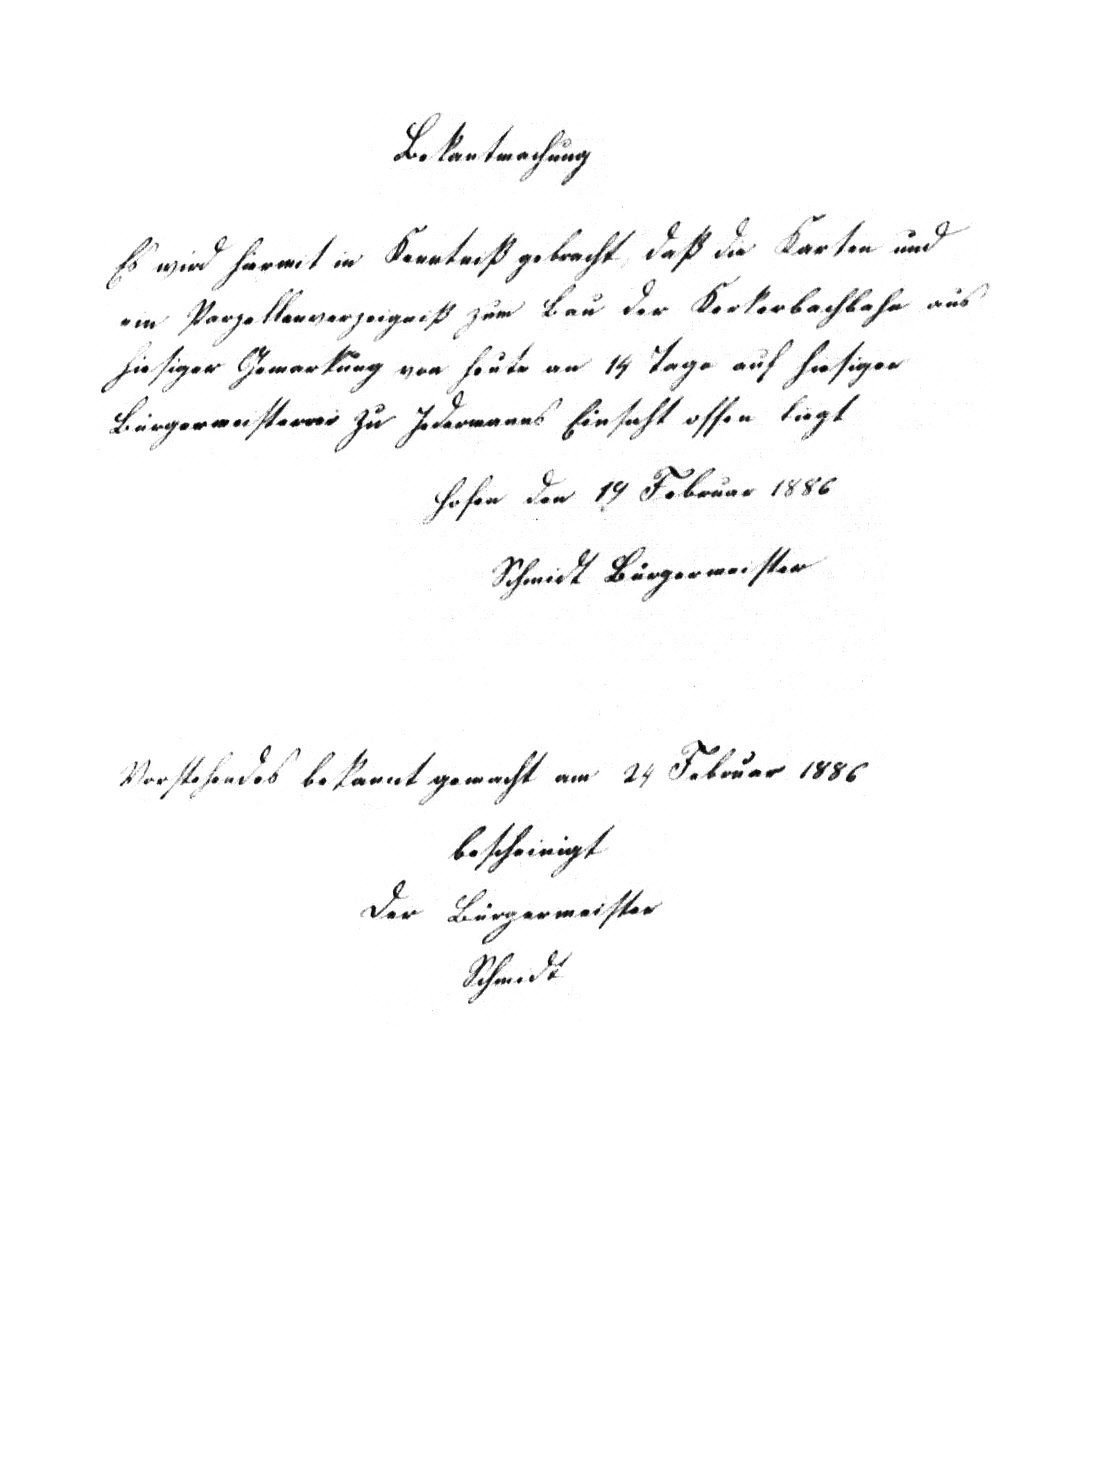 Bekantmachung
Es wird hiermit in Kenntniß gebracht, daß die Karten und
ein Parzellenverzeigniß zum Bau der Kerkerbachbahn aus
hiesiger Gemarkung von heute an 14 Tage auf hiesiger
Bürgermeisterei zu Jedermanns Einsicht offen liegt
Hofen den 19 Februar 1886
Schmidt Bürgermeister
Vorstehendes bekannt gemacht am 24 Februar 1886
bescheinigt
Der Bürgermeister
Schmidt